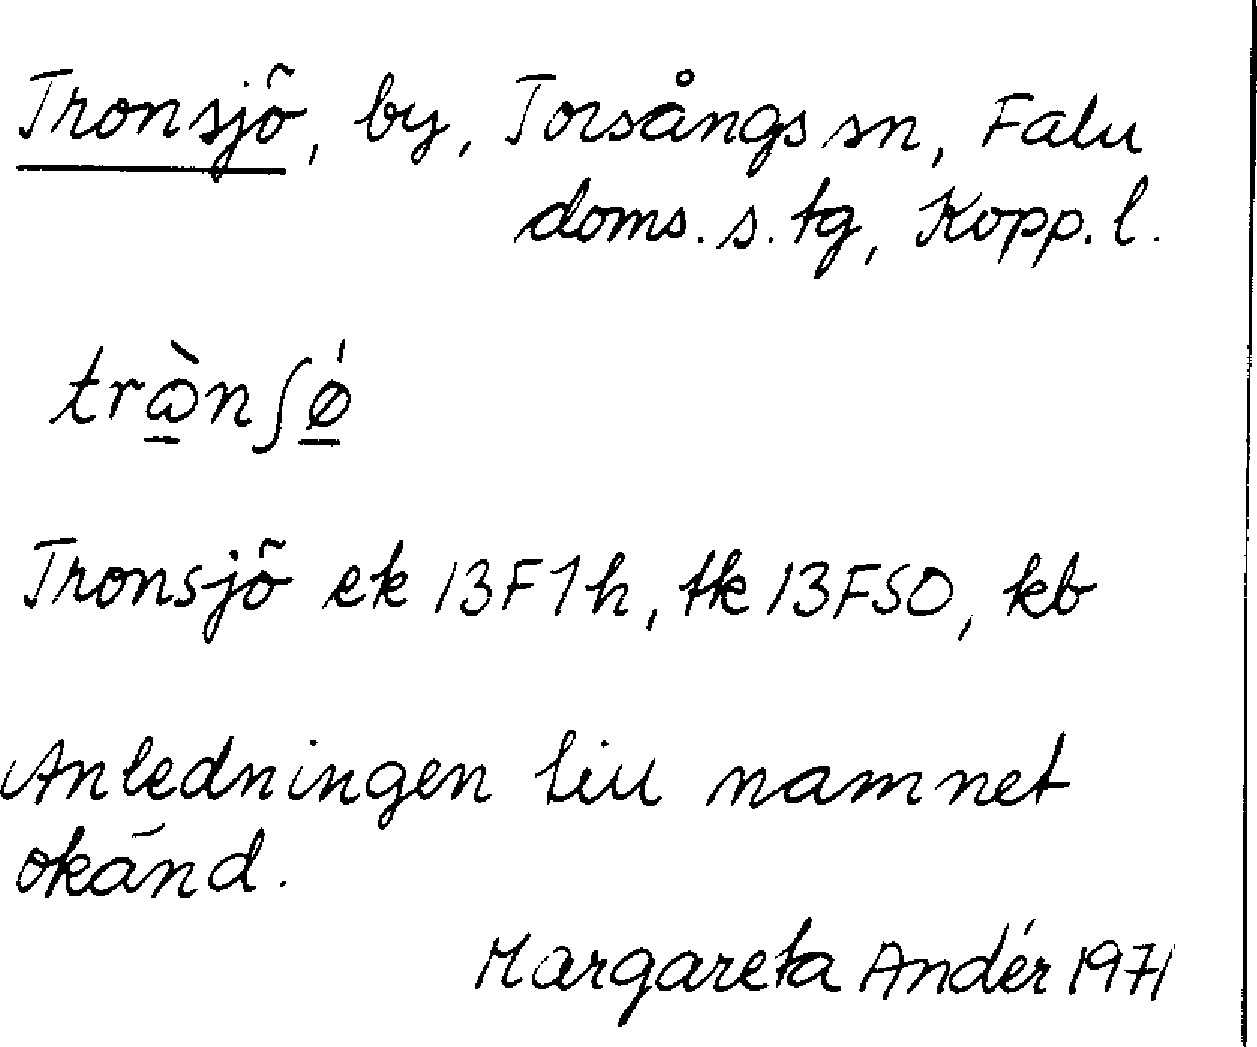 Tronsjö, by, Torsångs sn, Falu
doms. s. tg, Kopp. l.
trɷ̀nʃǿ
Tronsjö ek 13F1h, tk 13FSO, kb
Anledningen till namnet
okänd.
Margareta Andér 1971